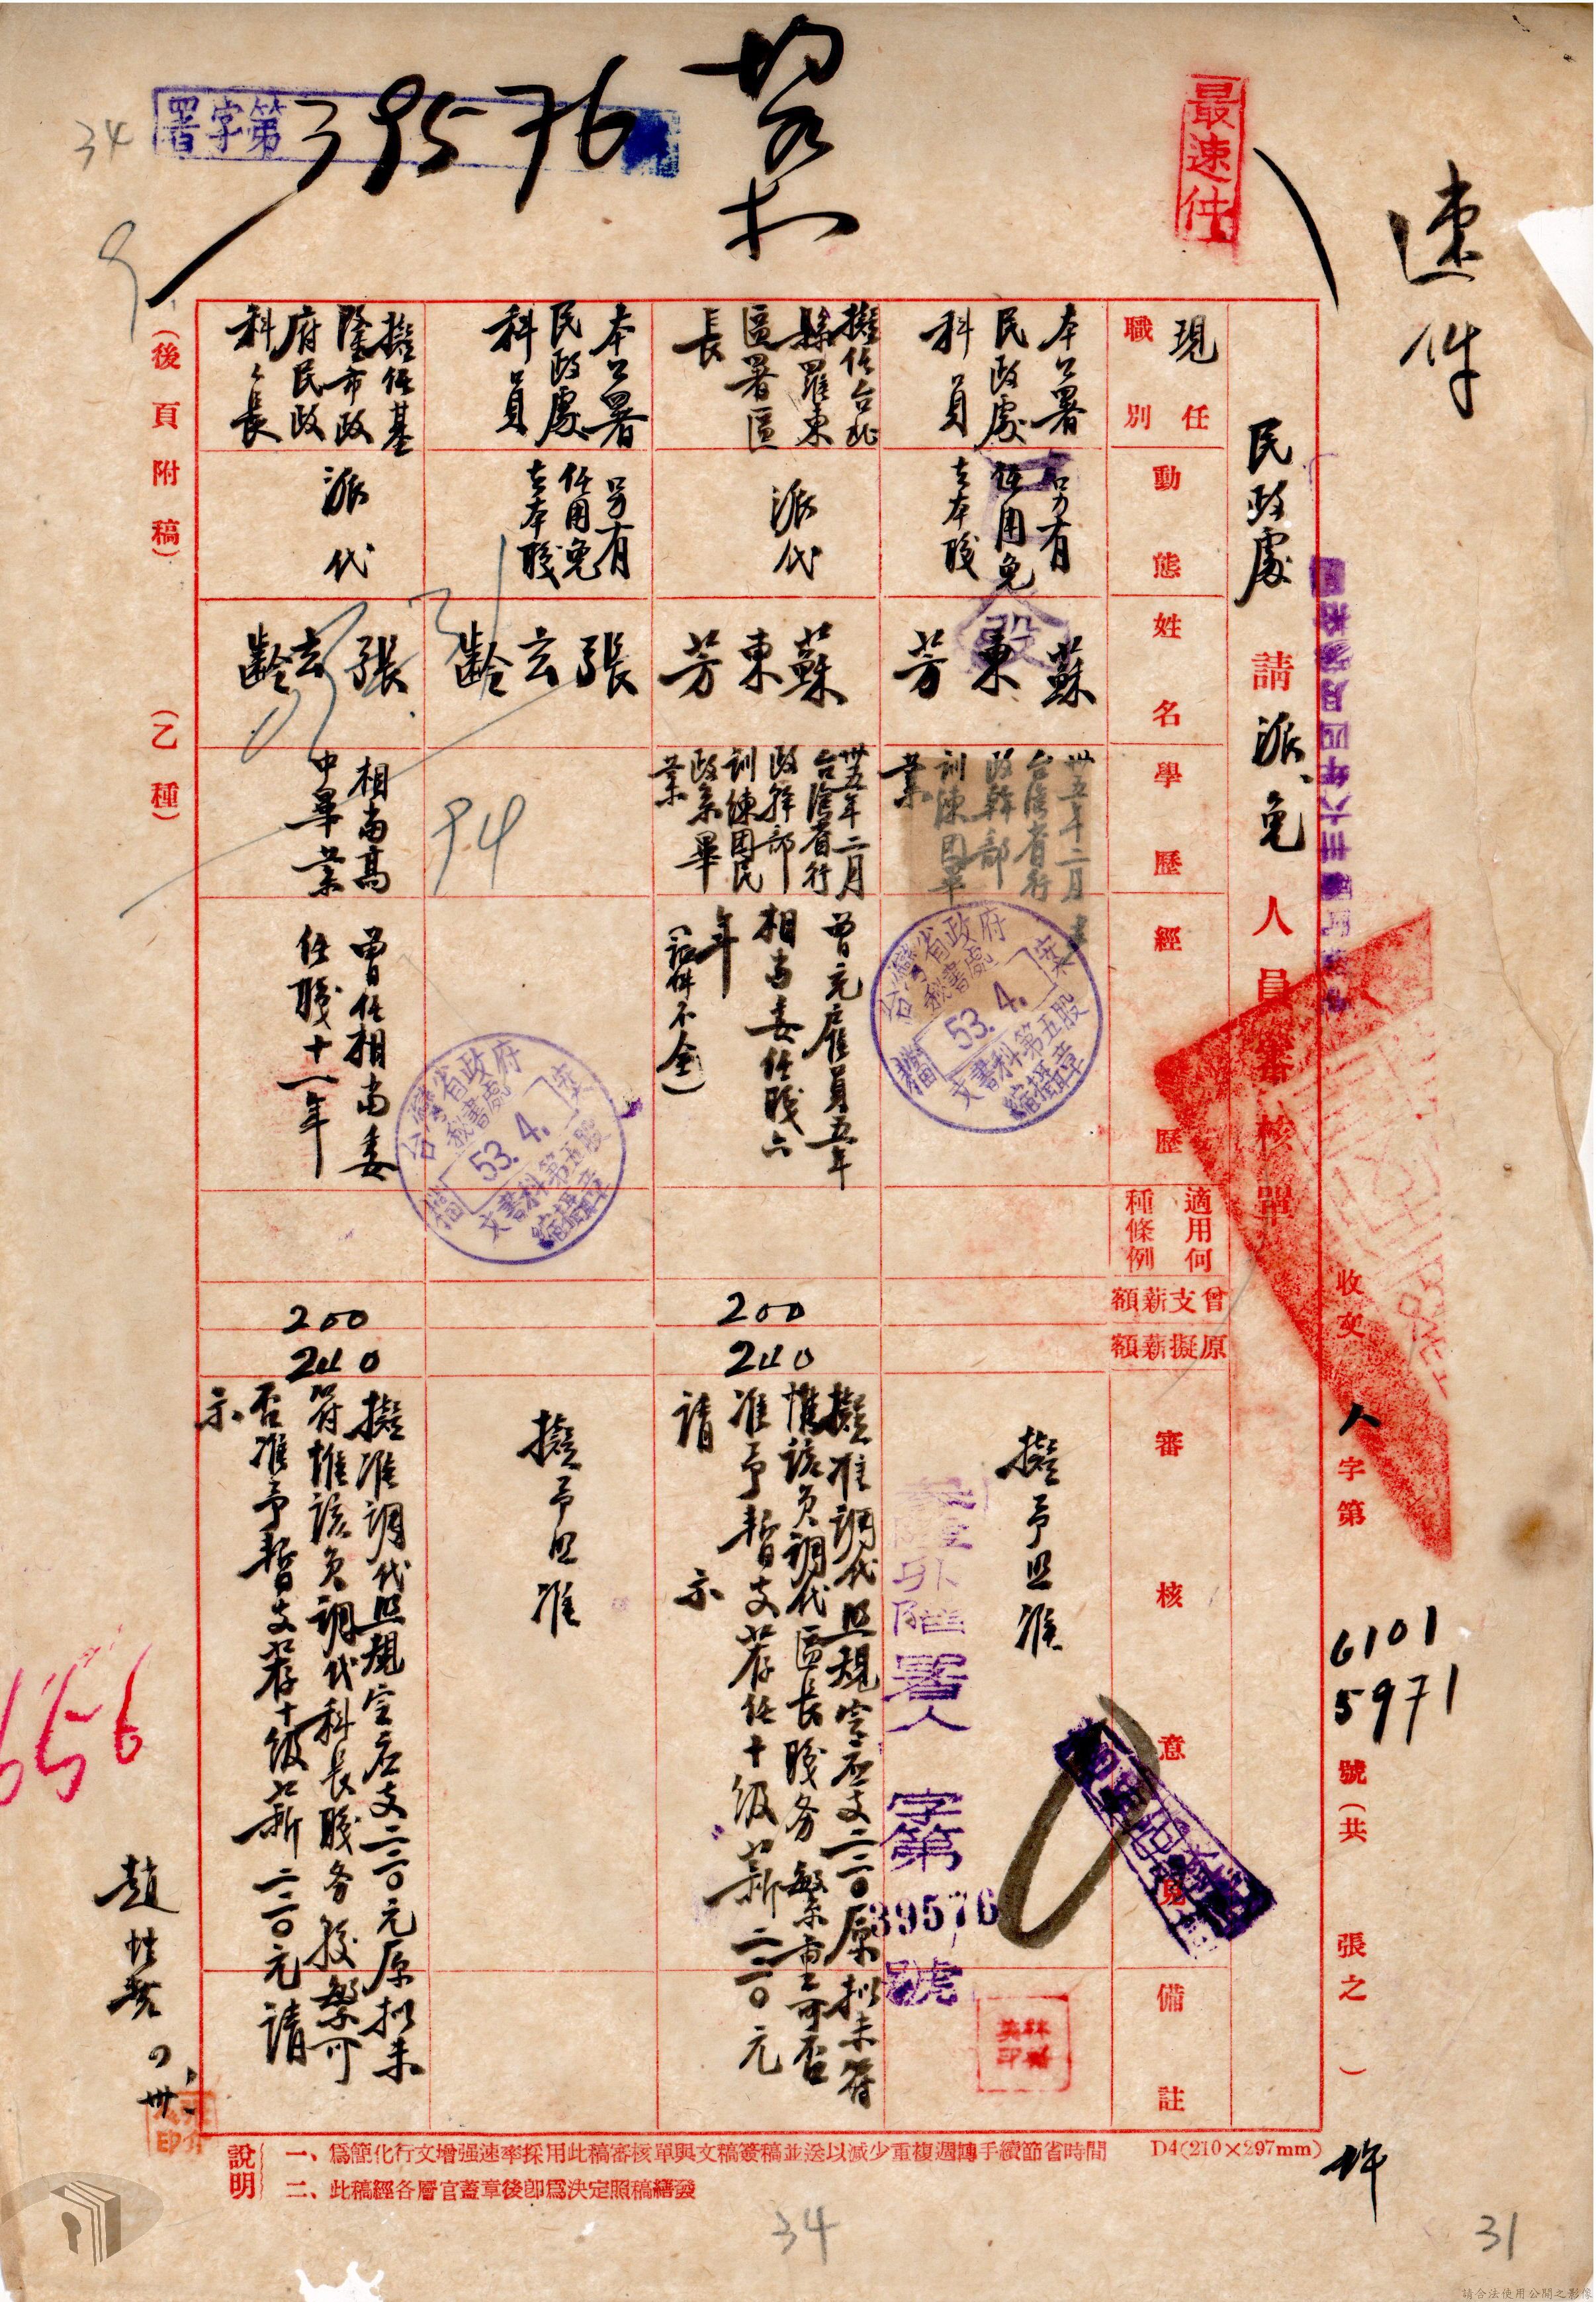 速件
最速件
署字第39576
34
民政處請派免人員審核單
收文人字第6101
5971
號(共 張之 )
現任職別
動態
姓名
學歷
經歷
適用何種條例
曾支薪額
原擬薪額
審核意見
備註
本公署民政處科員
另有任用免去本職
蘇東芳
卅五年十二月
台灣省行政幹部訓練團畢業
擬予照准
擬任台北縣羅東區署區長
派代
蘇東芳
卅五年二月台灣省行政幹部訓練團民政系畢業
曾充雇員五年相當委任職六年
(証件不全)
200
240
擬准調代照規定應支二二〇原拟未符
惟該員調代區長職务繁重可否
准予暫支荐任十級薪二二〇元
請示
本公署民政處科員
另有任用免去本職
張玄齡
擬予照准
擬任基隆市政府民政科科長
派代
張玄齡
相當高中畢業
曾任相當委任職十一年
200
240
擬准調代照規定應支二二〇元原拟未
符惟該員調代科長職务較繁可
否准予暫支荐十級薪二二〇元請
示
署人字第39576號
台灣省政府秘書處
檔案
53.4.
文書科第五股
縮攝章
台灣省政府秘書處
檔案
53.4.
文書科第五股
縮攝章
94
(後頁附稿)
(乙種)
656
說明
一、爲簡化行文增强速率採用此稿審核單與文稿簽稿並送以減少重複週轉手續節省時間
二、此稿經各層官蓋章後卽爲決定照稿繕發
D4(210×297mm)
34
31
請合法使用公開之影像